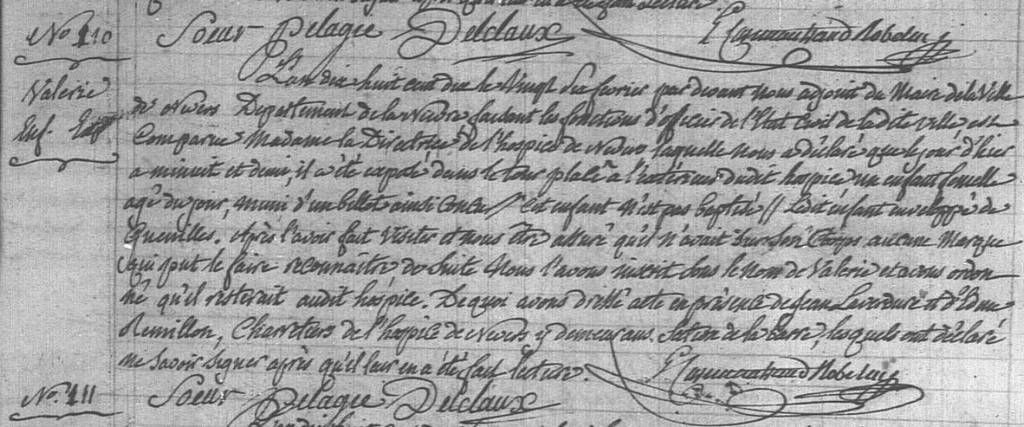 No. 110 Soeur Pelagie Delclaux
Valerie
Enf. Exp
L'an dix huit cent dix le Vingt six fevrier par devant nous adjoint du Maire de la Ville
de Nevers Departement de la Nievre faisant les fonctions d'officier de l'Etat Civil de la dite ville est
Comparue Madame la Directrice de l'hospice de Nevers laquelle nous a déclaré que le jour d'hier
a minuit et demi, il a été exposé dans le tour placé a l'extérieur dudit hospice un enfant femelle
agé du jour, muni d'un billet ainsi Conçu // Cet enfant N'est pas baptisé // Ledit enfant enveloppé de
Guenilles. Après l'avoir fait Visiter et nous être assuré qu'il n'avait sur son Corps aucune Marque
qui put le faire reconnaître de suite Nous l'avons inscrit sous le nom de Valerie et avons ordon
né qu'il resterait audit hospice. De quoi avons dressé acte en présence de Jean Leverdure et
Remillon, Charretiers de l'hospice de Nevers y demeurans Section de la barre, lesquels ont déclaré
ne Savoir Signer après qu'il leur en a été fait lecture.
No. 111 Soeur Pelagie Delclaux